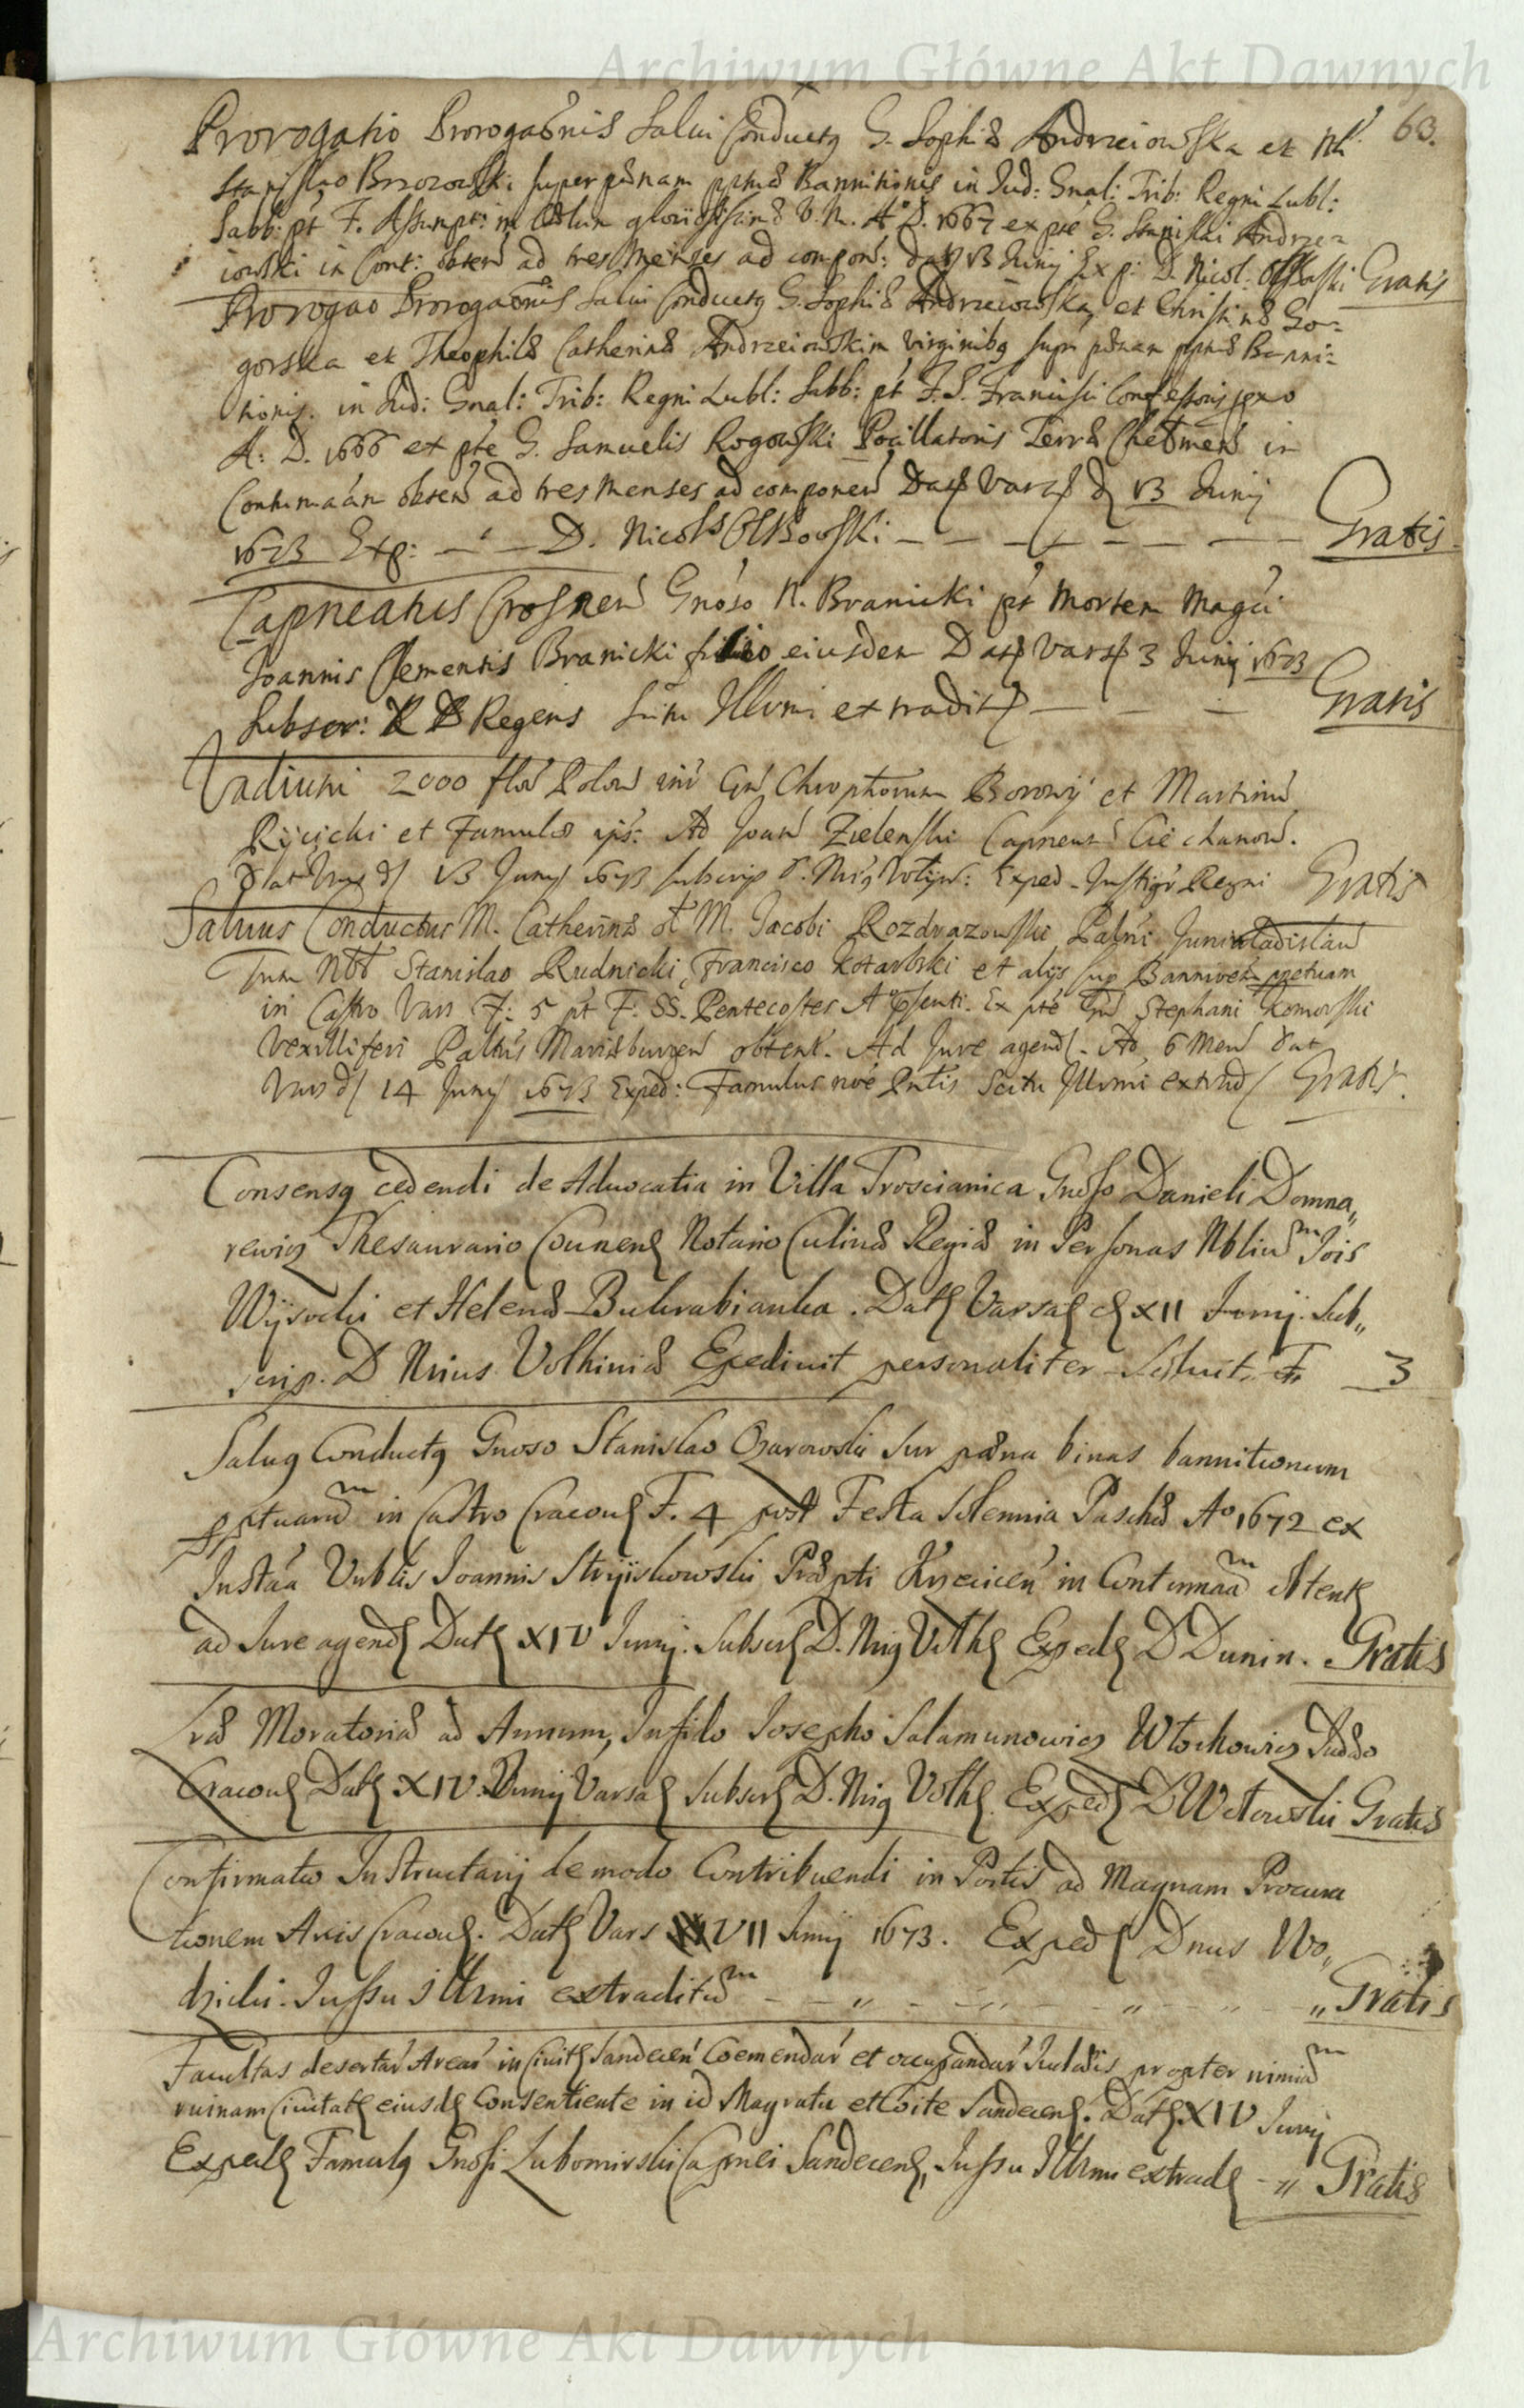 Archiwum Główne Akt Dawnych
63.
Prorogatio Prorogaōnis Salui Conductq G. Sophiæ Andrzeiowska et Nb̃
Stanislao Brzozowski super pænam ppt̃uæ Bannitionis in Jud: Gnal: Trib: Regni Lubl:
Sabb: pt F. Assumpt: in Cœlum gloriosissimæ V. M. A° D. 1667 ex pte G. Stanislai Andrze=
iowski in Cont: obten̄ ad tres Menses ad compon̄: 13 Junij Exp: D. Nicol: Gratis
Prorogao Prorogaōnis Salui Conductq G. Sophiæ Andrzeiowska, et Christinæ Go=
gorska et Theophilæ Catherinæ Andrzeiowskim virginibq supr pænam Banni=
tionis. in Jud: Gnal: Trib: Regni Lubl: Sabb: pt F. S. Francisci Confessoris
A: D. 1666 et pte G. Samuelis Rogowski Pocillatoris Terræ Chelmen̄ in
Contumaām obten̄ ad tres Menses ad componen̄ Dat Vars d 13 Junij
1673 Exp: — — D. Nicol — — — — — — Gratis
Capneatus Crosnen̄ Gnoso N. Branicki pt Mortem Magci
Joannis Clementis Branicki filio eiusdem Dat Vars 3 Junij 1673
Subscr: R D Regens Scitu Illmi extradit — — — Gratis
Vadium 2000 flor̄ Polon̄ int̄ Gn̄ Chrophorum Borowy et Martinū
Ryjcicki et Famulos ips: Ad Joan̄ Zielenski Capneum Ciechanow̄.
Dat Vars d 13 Junij 1673 subscrip D. Nrig Volijn: Exped. Justigr Regni Gratis
Saluus Conductus M. Catherinæ M. Jacobi Rozdrazowski Palni Juniuladislau
Tum Nob Stanislao Rudnicki, Francisco Kotarbski et alijs sup Bannioem ppetuam
in Castro Vars F: 5 pt F: SS. Pentecostes A° psenti. Ex pte Gn̄ Stephani Komorski
Vexilliferi Paltus Mariæburgen̄ obtent. Ad Jure agend. Ad 6 Men̄ Dat
Vars d 14 Junij 1673 Exped: Famulus Scitu Illmi extrad Gratis.
Consensq cedendi de Aduocatia in Villa Troscianica Gnoso Danieli Domna„
rewicz Thesaurario Notario Culinæ Regiæ in Personas Nbliū Jois
Wysocki et Helenæ Bukrabianka. Dat Varsa d XII Junij. Sub„
scrip. D Nrius Volhiniæ Expediuit personaliter Soluit F. 3
Saluq Conductq Gnoso Stanislao Ozarowski sur pæna binas bannitionum
pptuarū in Castro Cracou F. 4 post Festa Solennia Paschæ A° 1672 ex
Instaā Vnblis Joannis Stryiskowski Præpti in Contumaā obtent
ad Jure agend Dat XIV Junij. Subscr D. Nrig Volh Exped D Dunin. Gratis
Lræ Moratoriæ ad Annum, Infido Josepho Salamunowicz Włochowicz Judæo
Cracou Dat XIV Junij Varsa Subscr D. Nrig Volh Exped D Witowski Gratis
Confirmatio Instructarij de modo Contribuendi in Portis ad Magnam Procura
tionem Arcis Cracou. Dat Vars VII Junij 1673. Exped Dnus Wo„
dzicki. Jussu Illrmi extraditū – – „ – – „ – – „ – „ – „ Gratis
Facultas desertar̄ Arear̄ in Ciuit Sandecen̄ Coemendar̄ et occupandar̄ Judæis propter nimiā
ruinam Ciuitat eiusd Consentiente in id Magratu et Coite Sandecen. Dat XIV Junij
Exped Famulq Gnosi Lubomirski Capnei Sandecen, Jussu Illrmi extrad – „ Gratis
Archiwum Główne Akt Dawnych